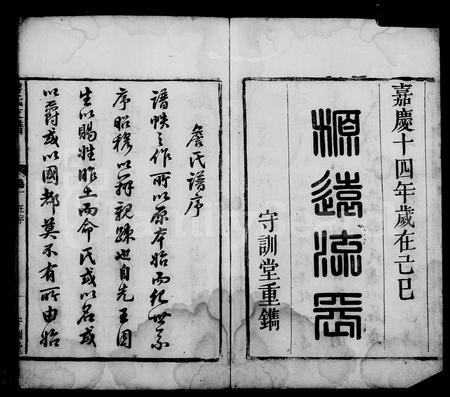 嘉慶十四年歲在己巳
源遠流長
守訓堂重鐫
詹氏譜序
譜帙之作所以原本始而杞世系
序昭穆以辨親踈也自先王因
生以賜姓胙土而命氏或以名或
以爵或以國都莫不有所由始